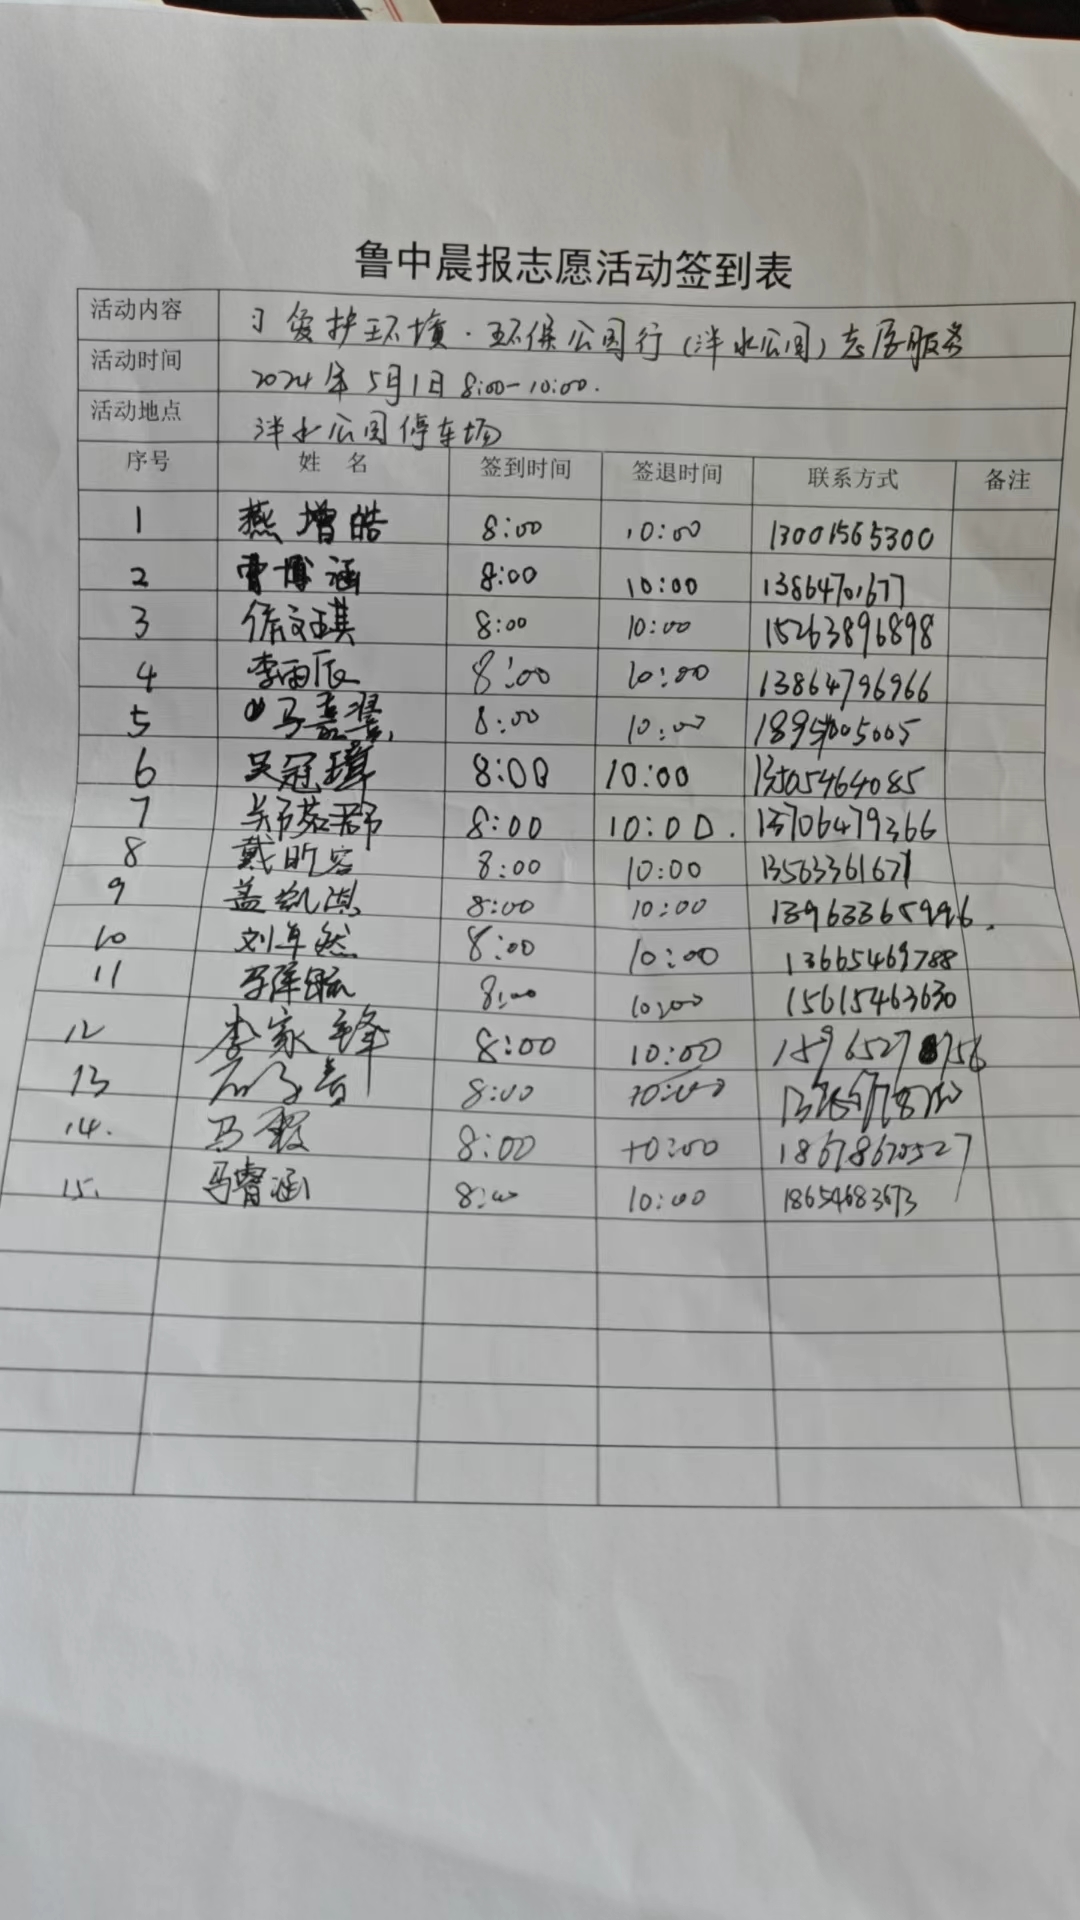 鲁中晨报志愿活动签到表
活动内容 爱护环境·环保公园行(洋水公园)志愿服务
活动时间 2024年5月1日 8:00-10:00.
活动地点 洋水公园停车场
序号 姓名 签到时间 签退时间 联系方式 备注
1 燕增皓 8:00 10:00 13001565300
2 曹博涵 8:00 10:00 13864701677
3 徐文琪 8:00 10:00 15263896898
4 李雨辰 8:00 10:00 13864796966
5 马嘉 8:00 10:00
6 吴冠璋 8:00 10:00
7 8:00 10:00. 13706479366
8 戴昕容 8:00 10:00 13563361671
9 盖凯淇 8:00 10:00
10 刘卓然 8:00 10:00 13665469788
11 8:00 10:00 15615463630
12 李家锋 8:00 10:00 15965278756
13 8:00 10:00
14. 马毅 8:00 10:00 18678670527
15. 马睿涵 8:00 10:00 18654683673